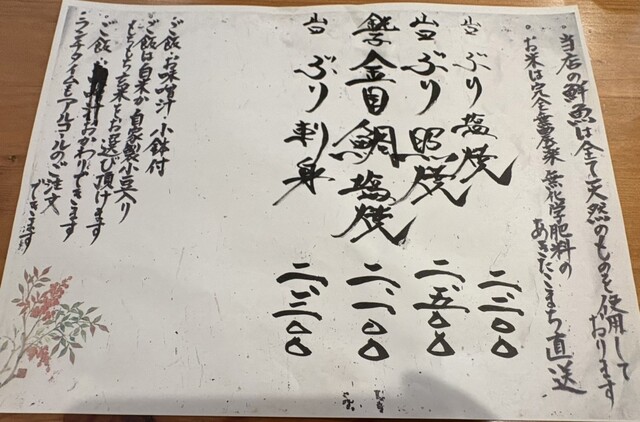 。当店の鮮魚は全て天然のものを使用して
おります
。お米は完全無農薬 無化学肥料の
あきたこまち直送
ぶり塩焼 二、二〇〇
ぶり照焼 二、五〇〇
銚子金目鯛塩焼 二、一〇〇
ぶり刺身 二、三〇〇
ご飯・お味噌汁 小鉢付
・ご飯は白米か自家製小豆入り
もちもち玄米とお選び頂けます
・ご飯、おかわりできます
・ランチタイムもアルコールのご注文
できます